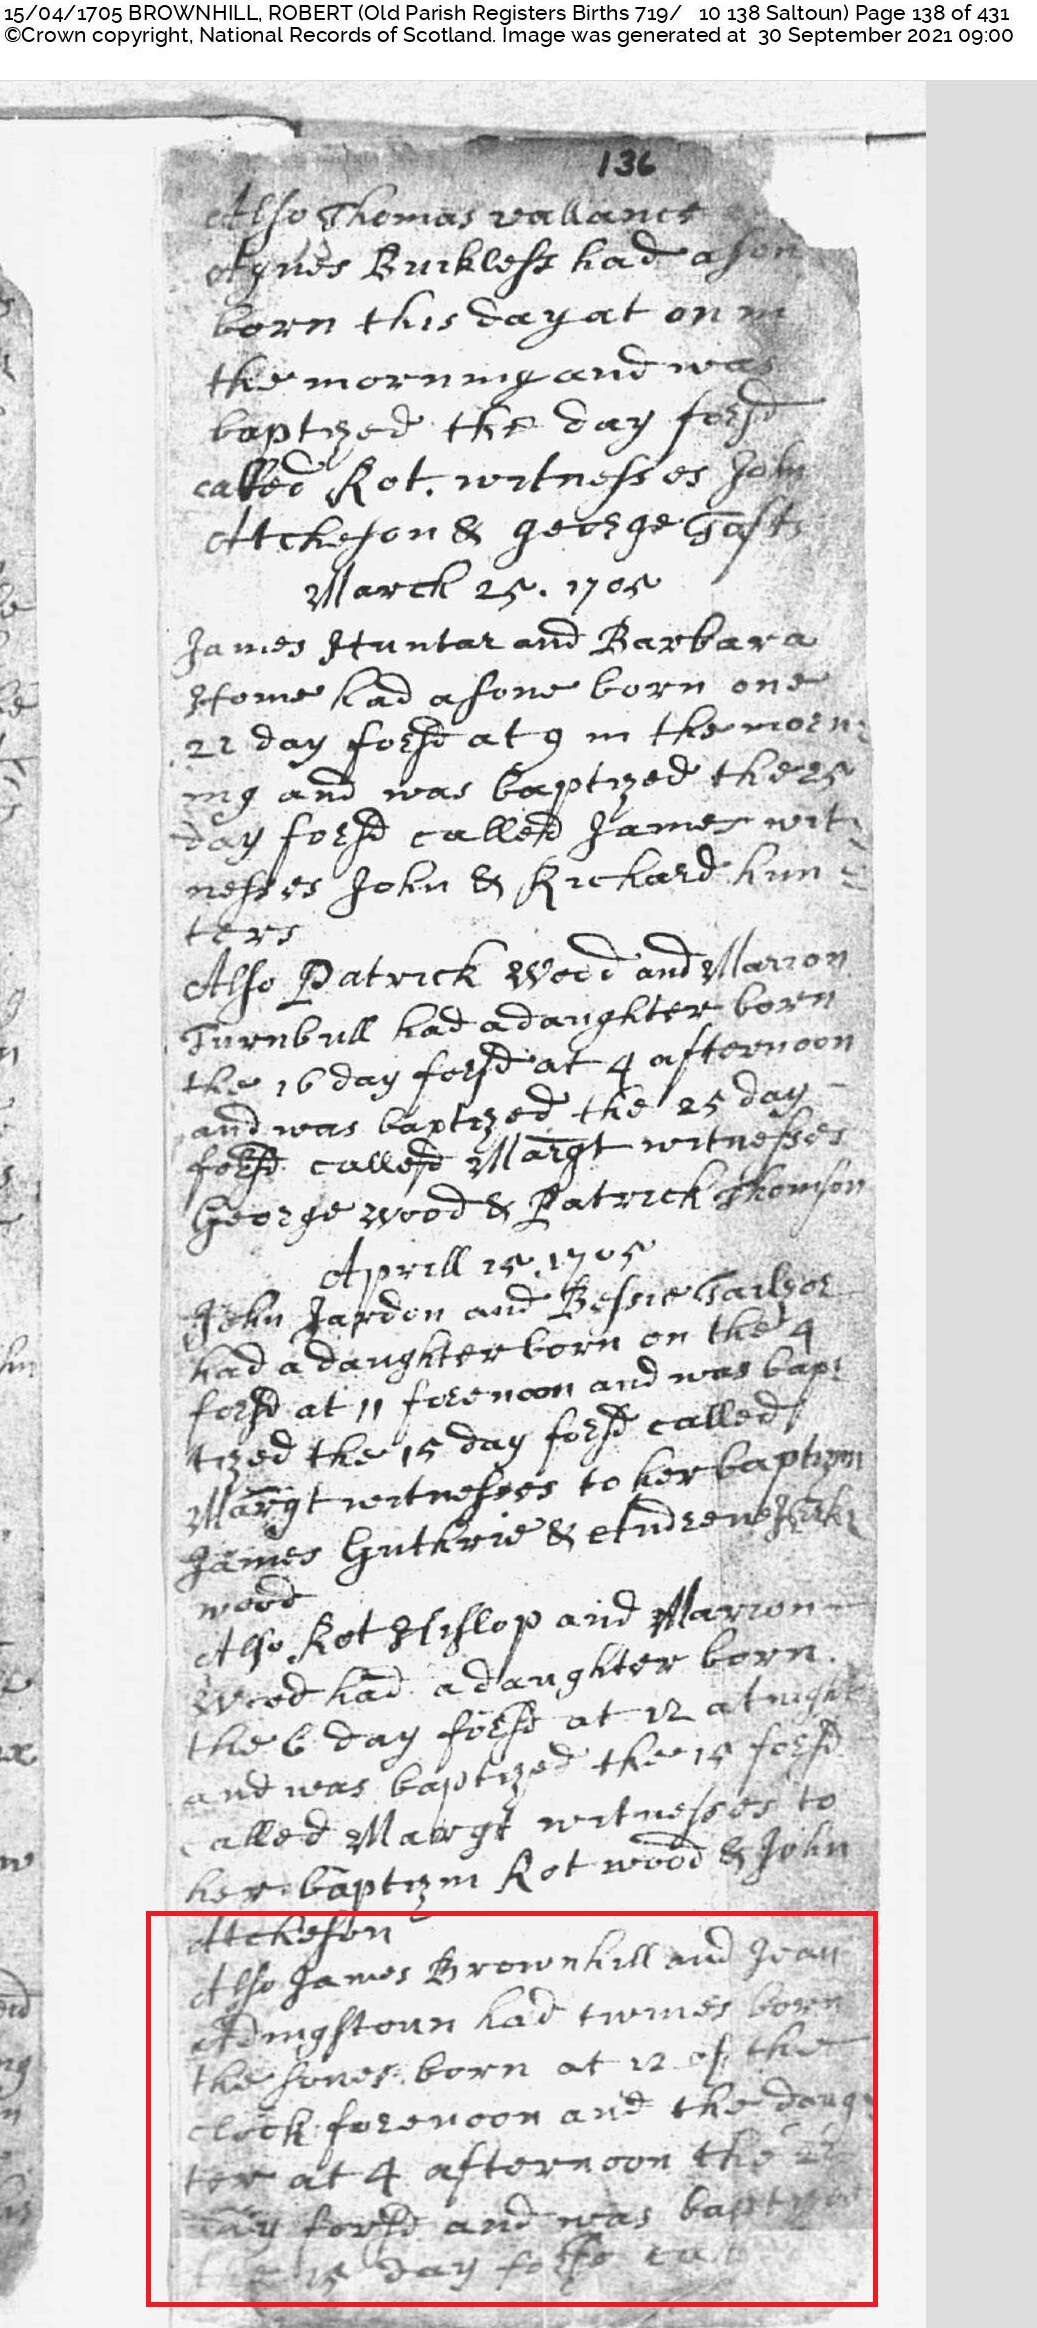 15/04/1705 BROWNHILL, ROBERT (Old Parish Registers Births 719/ 10 138 Saltoun) Page 138 of 431
©Crown copyright, National Records of Scotland. Image was generated at 30 September 2021 09:00
136
Also Thomas vallance
Agnes Buckless had a son
born this day at on in
the morning and was
baptized the day forsd
called Rot. witnesses John
Atcheson & George
March 25. 1705
James Huntar and Barbara
Home had a sone born one
22 day forsd at 9 in the morn:
ing and was baptized the 25
day forsd called James wit:
nesses John & Richard hun:
ters
Also Patrick Wood and Marion
Turnbull had a daughter born
the 16 day forsd at 4 afternoon
and was baptized the 25 day
forsd called Margt witnesses
George wood & Patrick Thomson
Aprill 15. 1705
John Jardon and Bessie
had a daughter born on the 4
forsd at 11 forenoon and was bap:
tized the 15 day forsd called
Margt witnesses to her baptizm
James Guthrie & Andrew
wood
Also Rot Hislop and Marion
Wood had a daughter born.
the 6 day forsd at 12 at night
and was baptized the 15 forsd
called Margt witnesses to
her baptizm Rot wood & John
Atcheson
Also James Brownhill and Jean
Adingstoun had twines born
the sones born at 12 of the
clock forenoon and the daugh
ter at 4 afternoon the
day forsd and was baptized
the 15 day forsd